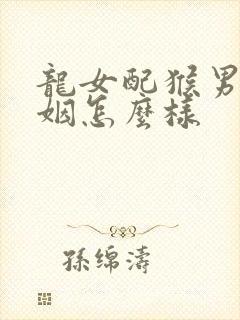 龍女配猴男
姻怎麼樣
孫綿濤